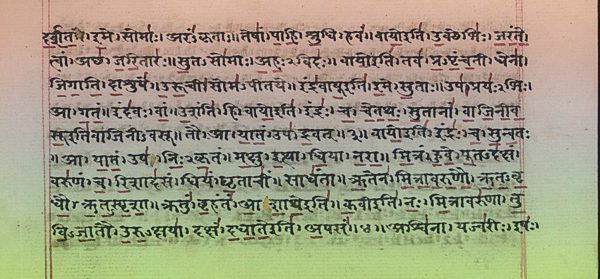 दर्शत। इमे। सोमाः। अरंऽकृताः। तेषां। पाहि। श्रुधि। हवं॥ वायोइति। उक्थेभिः। जरंते।
त्वां। अच्छ। जरितारः। सुतऽसोमाः। अहःऽविदः॥ वायोइति। तव। प्रऽपृंचती। धेना।
जिगाति। दाशुषे। उरूची। सोमऽपीतये॥ इंद्रवायूइति। इमे। सुताः। उप। प्रयःऽभिः।
आ। गतं। इंदवः। वां। उशंति। हि॥ वायोइति। इंद्रः। च। चेतथः। सुतानां। वाजिनीव
सूइतिवाजिनीऽवसू। तौ। आ। यातं। उप। द्रवत्॥३॥ वायोइति। इंद्रः। च। सुन्वतः
। आ। यातं। उप। निःऽकृतं। मक्षु। इत्था। धिया। नरा॥ मित्रं। हुवे। पूतऽदक्षं।
वरुणं। च। रिशादसं। धियं। घृताचीं। साधंता॥ ऋतेन। मित्रावरुणौ। ऋतऽवृ
धौ। ऋतऽस्पृशा। क्रतुं। बृहंतं। आशाथेइति॥ कवीइति। नः। मित्रावरुणा। तु
विऽजातौ। उरुऽक्षया। दक्षं। दधातेइति। अपसं॥४॥ अश्विना। यज्वरीः। इषः।